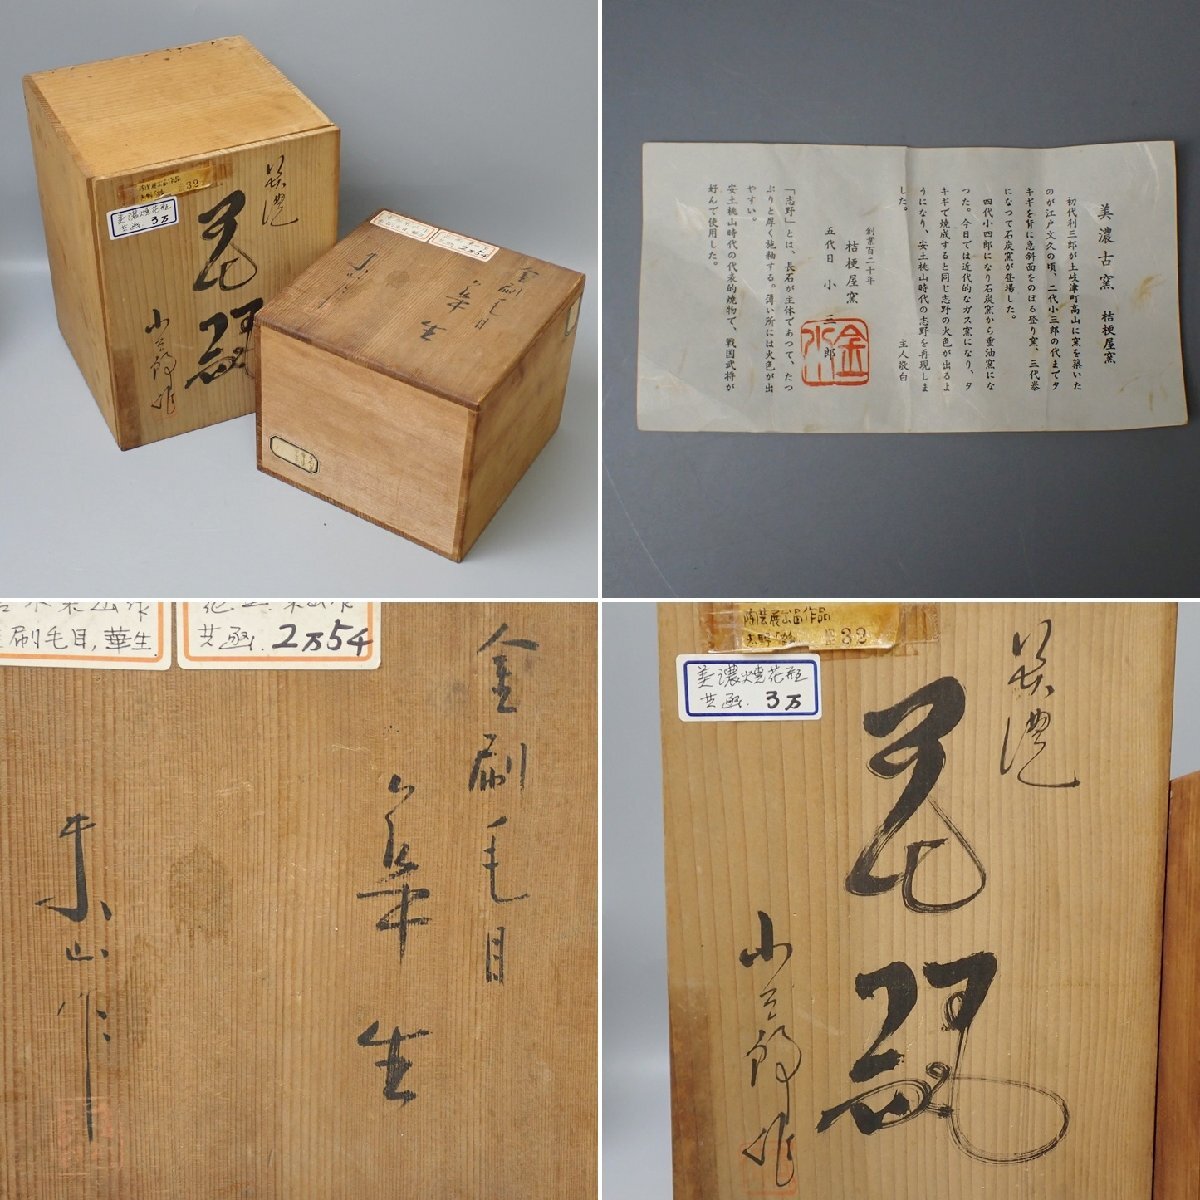 美濃
花瓶
小三郎作
美濃焼花瓶
共函 3万
39
金刷毛目
華生
2万54
美濃古窯 桔梗屋窯
初代利三郎が土岐津町高山に窯を築いた
のが江戸文久の頃、二代小三郎の代までタ
キギを背に急斜面をのぼる登り窯、三代委
になつて石炭窯が登場した。
四代小四郎になり石炭窯から重油窯にな
つた。今日では近代的なガス窯になり、タ
キギで焼成すると同じ志野の火色が出るよ
うになり、安土桃山時代の志野を再現しま
した。
主人敬白
創業百二十年
桔梗屋窯
五代目 小三郎
「志野」とは、長石が主体であつて、たつ
ぷりと厚く施釉する。薄い所には火色が出
やすい。
安土桃山時代の代表的焼物で、戦国武将が
好んで使用した。
刷毛目,華生
共函. 2万54
金刷毛目
華生
山作
陶芸展出品作品
39
美濃焼花瓶
共函. 3万
美濃
花瓶
小三郎作